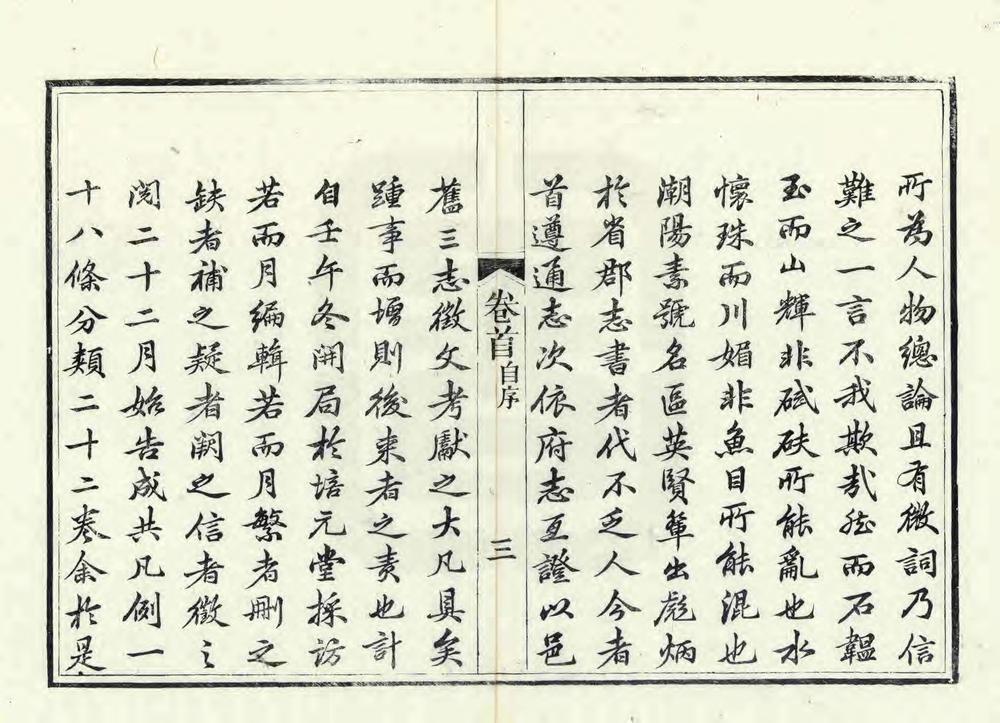 所為人物總論且有微詞乃信
難之一言不我欺哉然而石韞
玉而山輝非碔砆所能亂也水
懷珠而川媚非魚目所能混也
潮陽素號名區英賢輩出彪炳
於省郡志書者代不乏人今者
首遵通志次依府志互證以邑
卷首 自序 三
舊三志徵文考獻之大凡具矣
踵事而增則後来者之责也計
自壬午冬開局於培元堂採訪
若而月編輯若而月繁者刪之
缺者補之疑者闕之信者徵之
閱二十二月始告成共凡例一
十八條分類二十二卷余於是